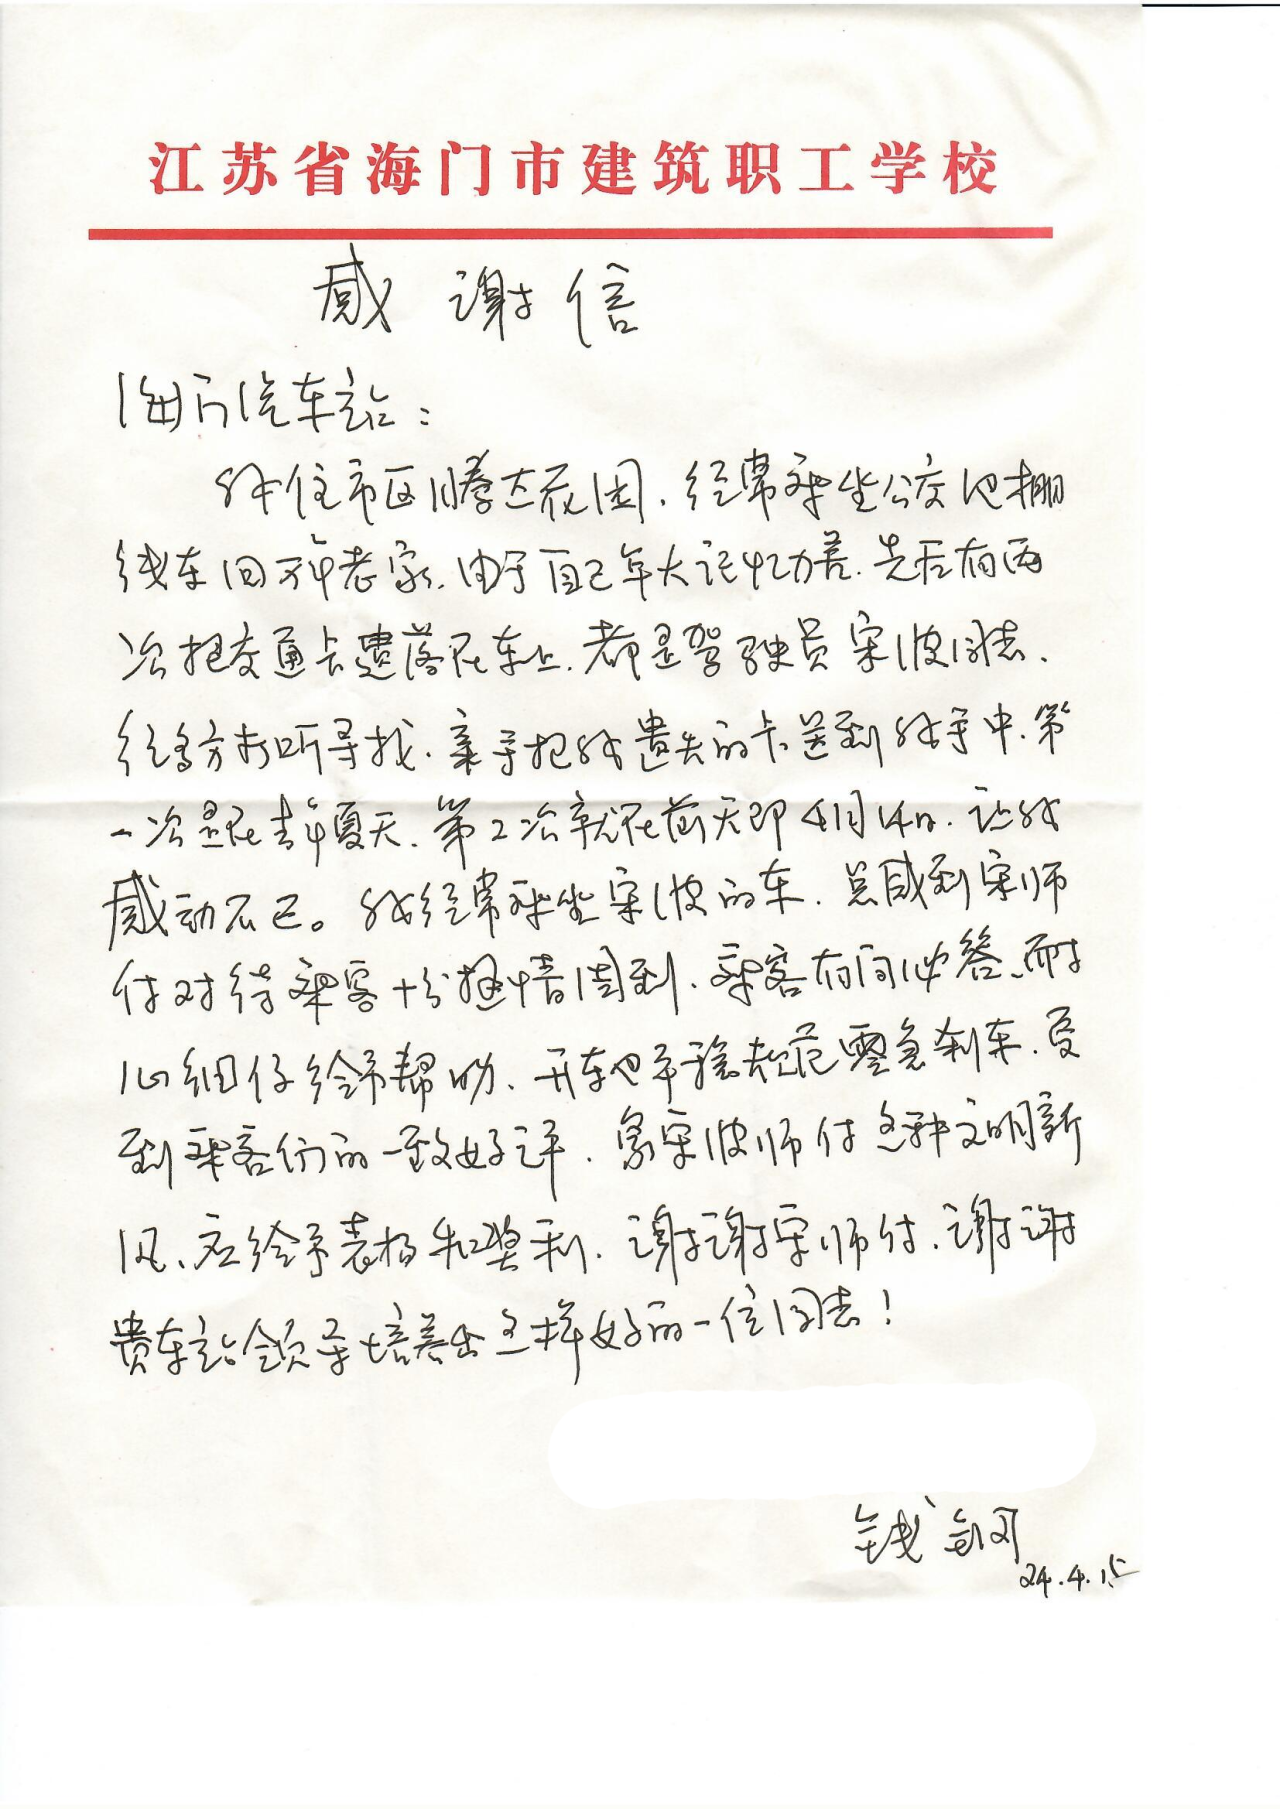 江苏省海门市建筑职工学校
感谢信
海门汽车站：
我住市区腾达花园，经常乘坐公交
线车回 老家，由于自己年大记忆力差，先后有两
次把交通卡遗落在车上，都是驾驶员宋波同志，
经多方打听寻找，亲手把我遗失的卡送到我手中，第
一次是在去年夏天，第2次就在前天即4月14日，让我
感动不已。我经常乘坐宋波的车，总感到宋师
付对待乘客十分热情周到，乘客有问必答、耐
心细仔给予帮助，开车也平稳 急刹车，受
到乘客们的一致好评，象宋波师付这种文明新
风、应给予表扬和奖利，谢谢宋师付，谢谢
贵车站领导培养出这样好的一位同志！
钱钢
24.4.15